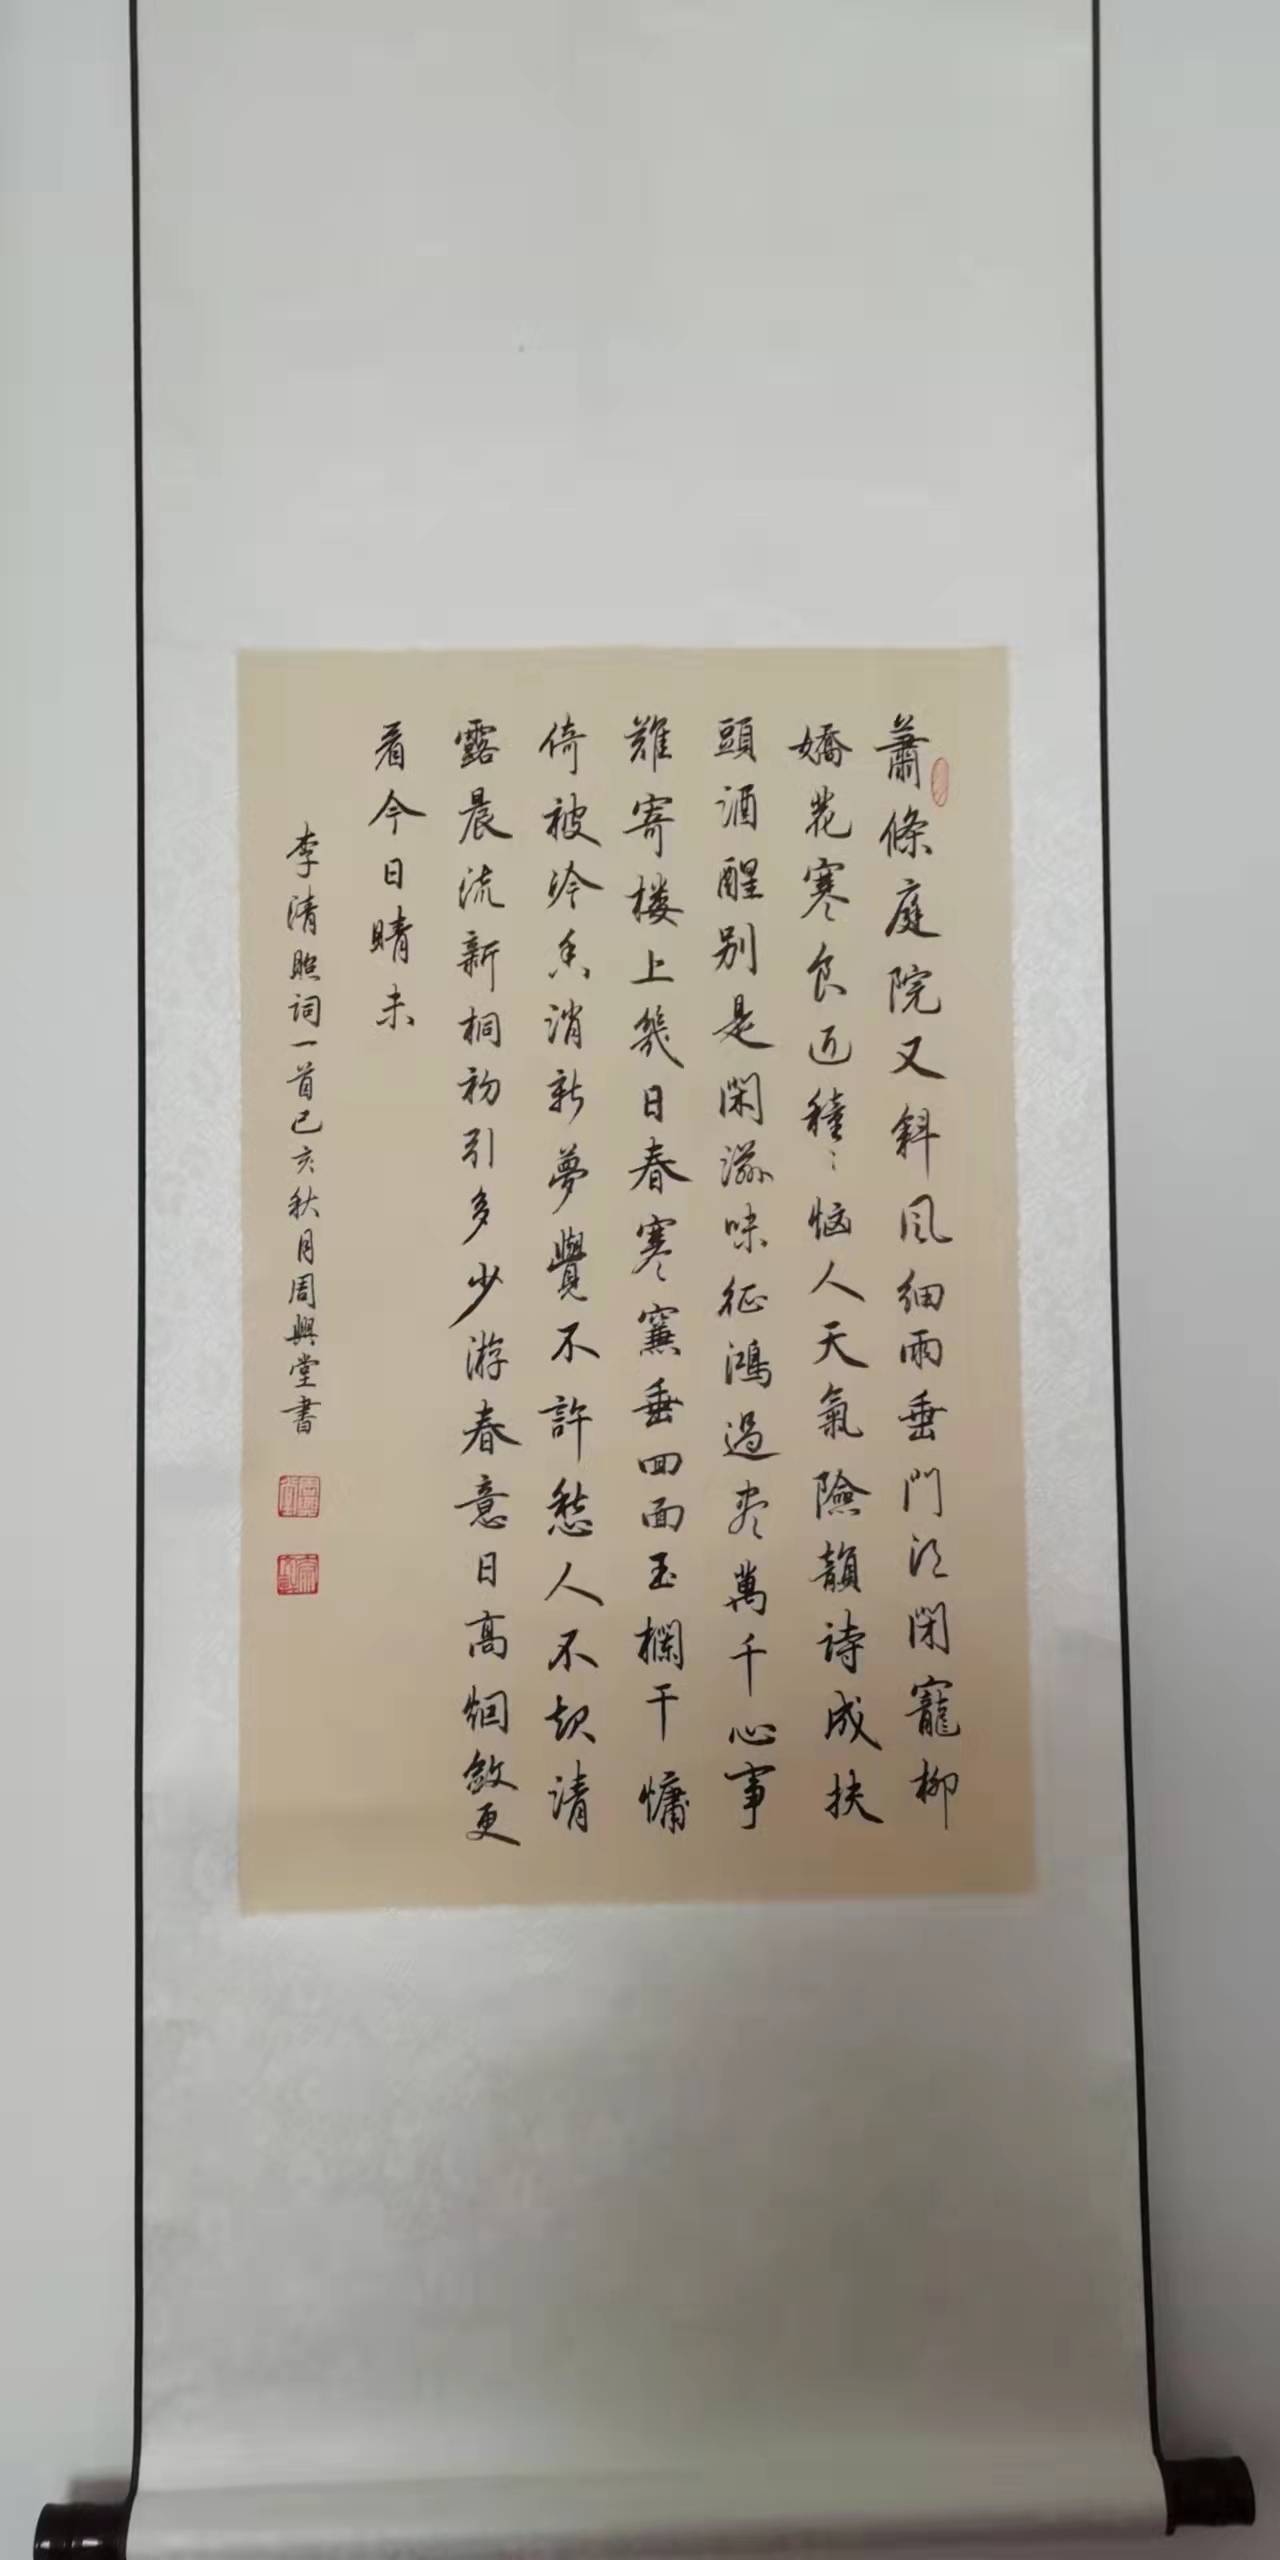 蕭條庭院又斜风细雨垂門须闭寵柳
嬌花寒食近種種恼人天氣險韻诗成扶
頭酒醒别是闲滋味征鴻過尽萬千心事
難寄楼上幾日春寒寒簾垂四面玉欄干慵
倚被冷香消新夢覺不許愁人不起清
露晨流新桐初引多少游春意日高烟斂更
看今日晴未
李清照词一首己亥秋月周興堂書